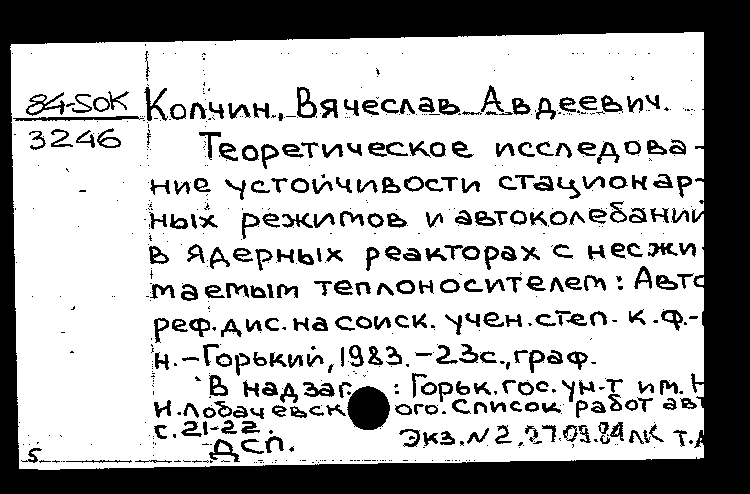 84-5ОК Колчин, Вячеслав Авдеевич.
3246 Теоретическое исследова-
ние устойчивости стационар-
ных режимов и автоколебаний
в ядерных реакторах с несжи-
маемым теплоносителем: Авто
реф.дис.на соиск. учен.степ. к.ф.-
н.-Горький, 1983.-23с.,граф.
В надзаг. : Горьк.гос.ун-т им. Н
И.Лобачевского. Список работ авт
с. 21-22.
ДСП. Экз.N 2, 27.09.84 ЛК Т.А
5